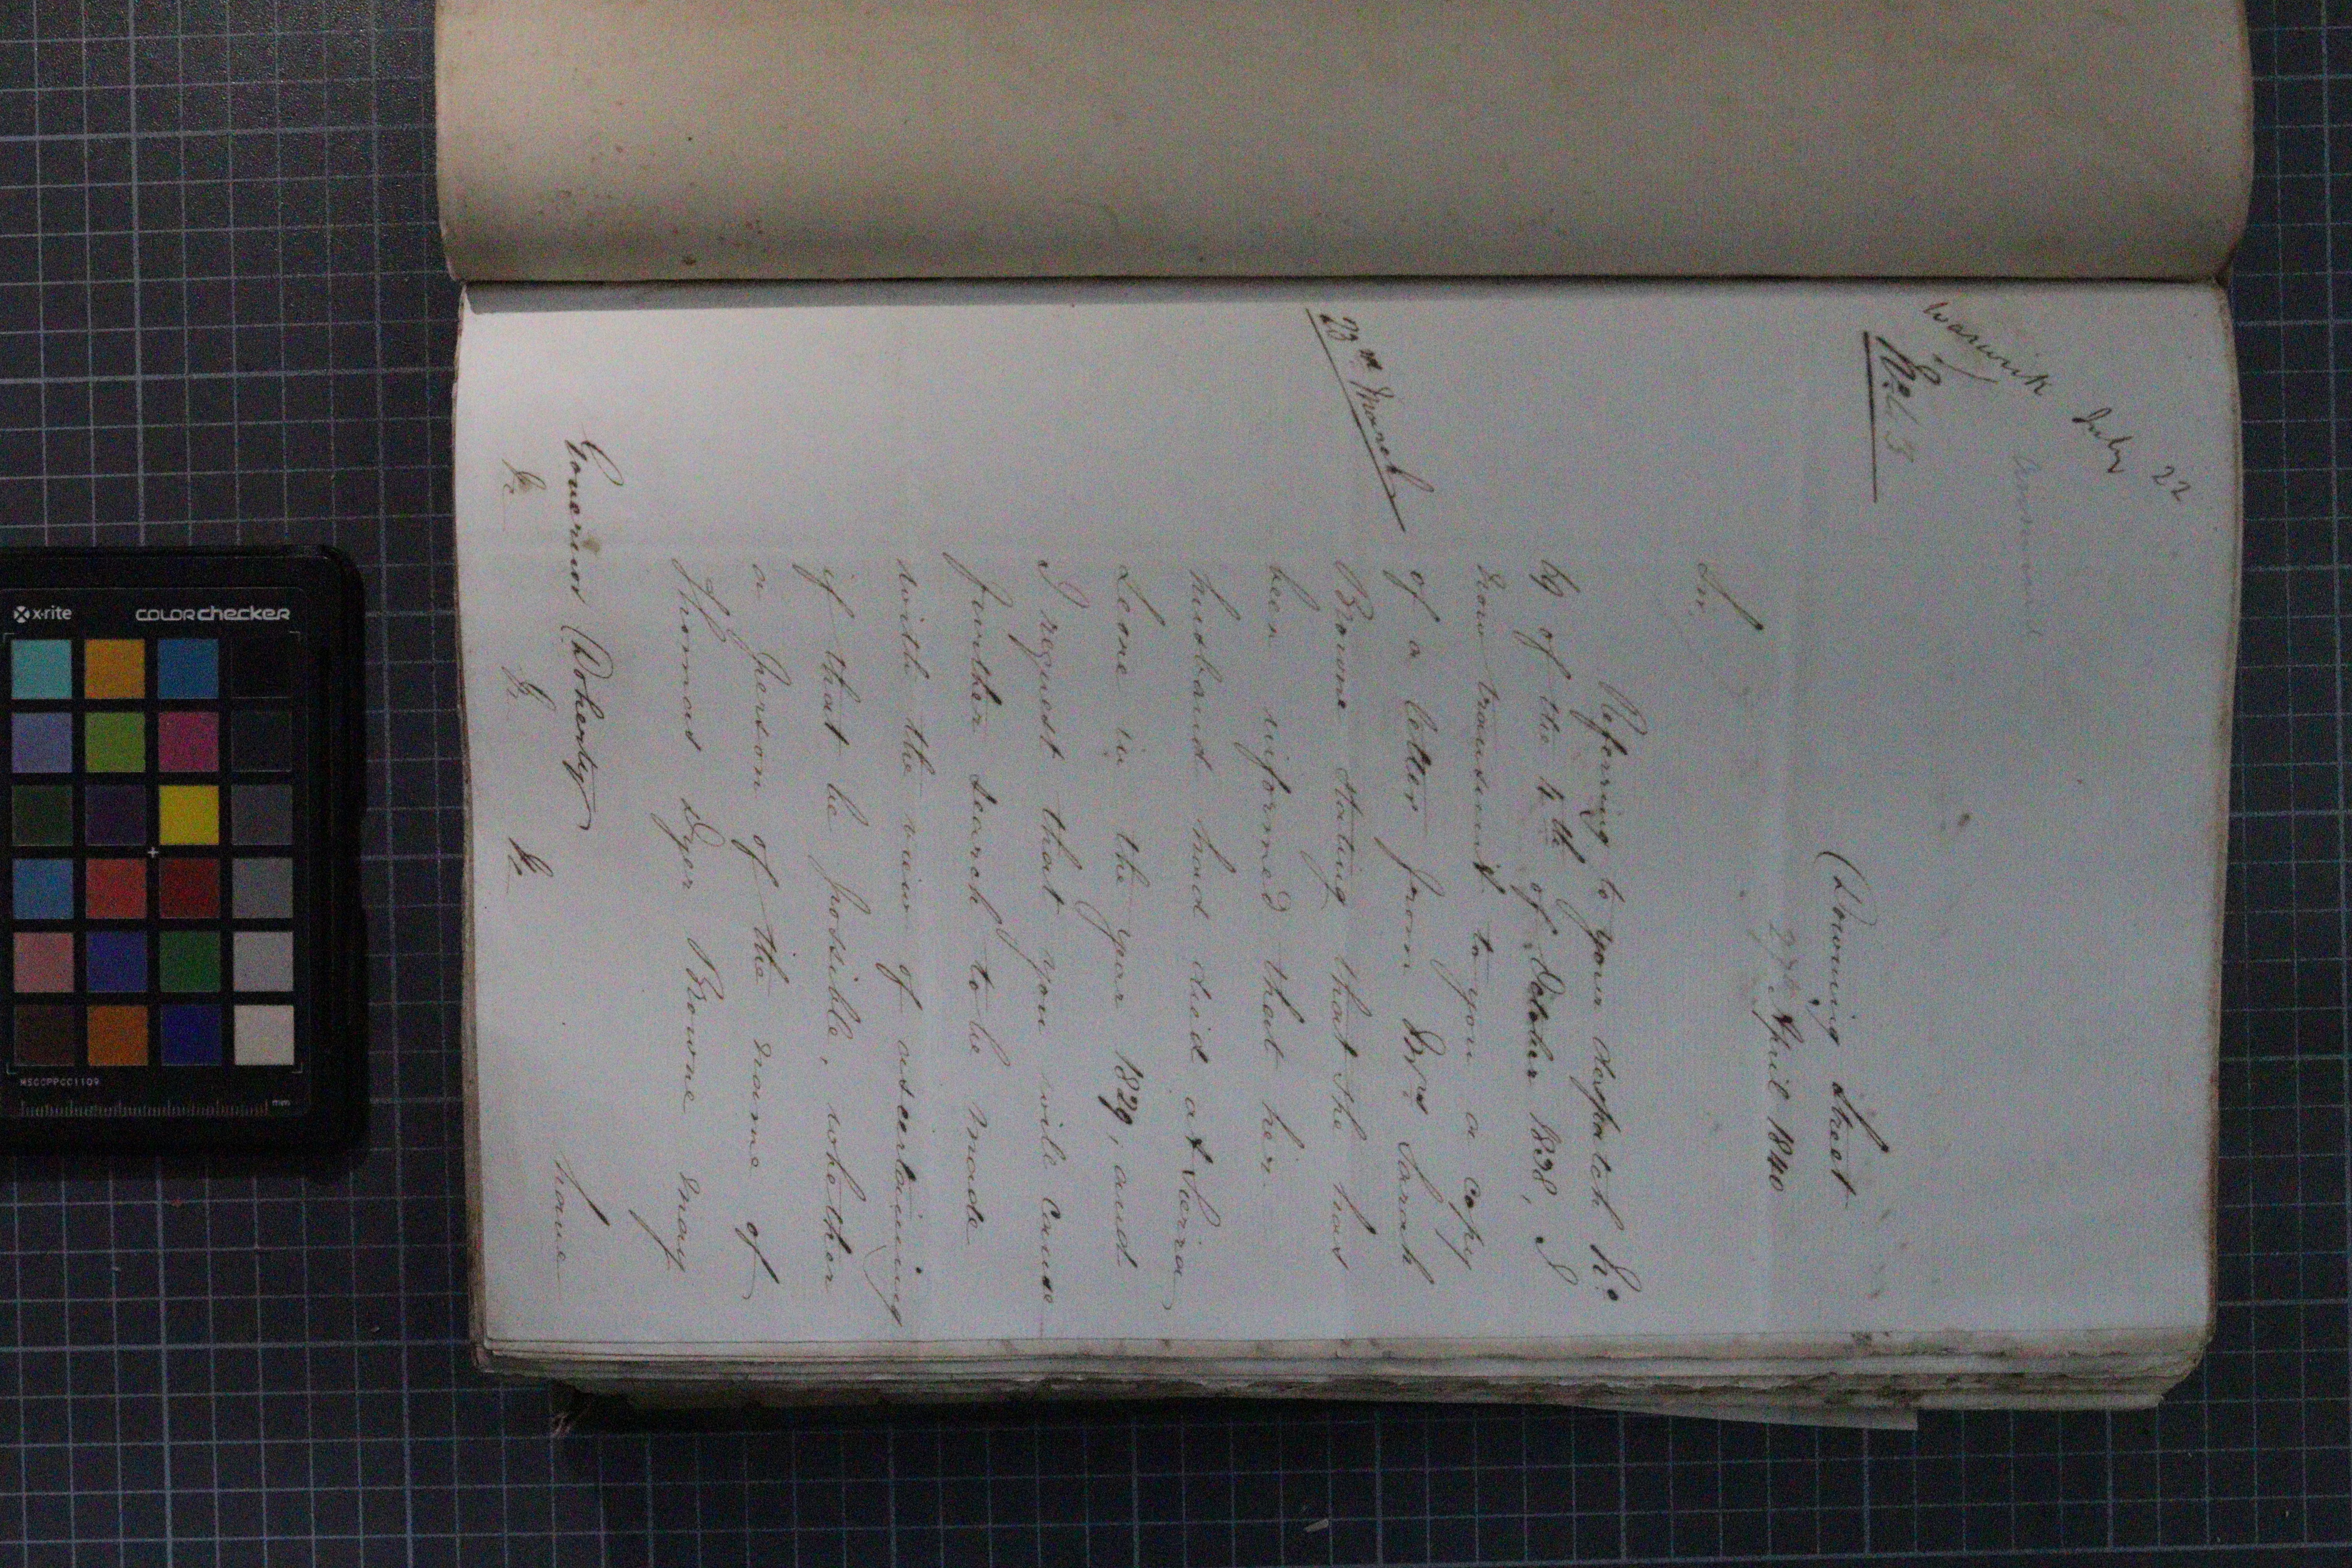 Warwick July 22
Answered
No. 3
Downing Street
27 April 1840
Sir,
Referring to your despatch No.
of the 4th of October 1838, I
now transmit to you a copy
23rd March
of a letter from Mrs Sarah
Browne stating that she has
been informed that her
husband had died at Sierra
Leone in the year 1829, and
I request that you will cause
further search to be made
with the view of ascertaining
if that be possible, whether
a person of the name of
Thomas Dyer Browne may
have
Governor Doherty
&c &c &c
x-rite COLORchecker
MSCCPPCC1109
mm